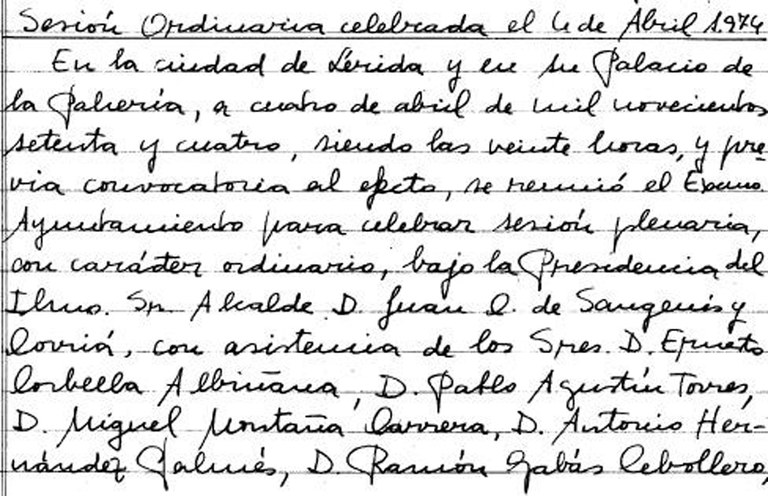 Sesión Ordinaria celebrada el 4 de Abril 1.974
En la ciudad de Lérida y en su Palacio de
la Pahería, a cuatro de abril de mil novecientos
setenta y cuatro, siendo las veinte horas, y pre
via convocatoria al efecto, se reunió el Excmo
Ayuntamiento para celebrar sesión plenaria,
con carácter ordinario, bajo la Presidencia del
Ilmo. Sr. Alcalde D. Juan C. de Sangenís y
Corriá, con asistencia de los Sres. D. Ernesto
Corbella Albiñana, D. Pablo Agustín Torres,
D. Miguel Montaña Carrera, D. Antonio Her-
nández Palmés, D. Ramón Gabás Cebollero,